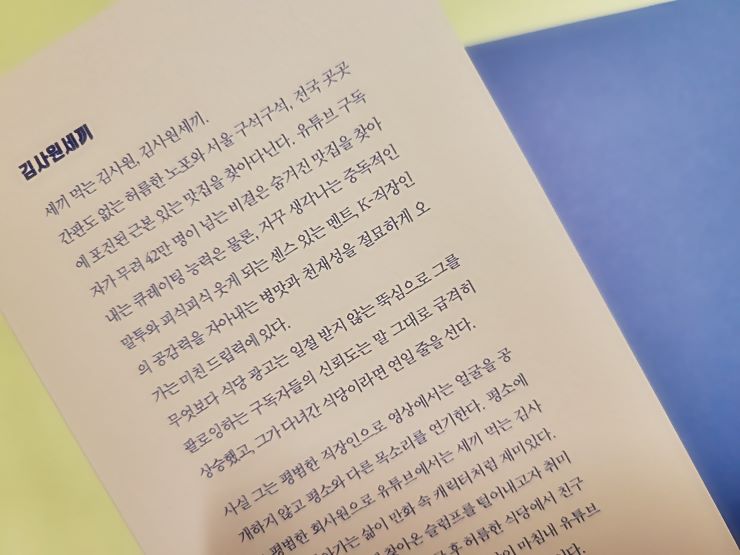 김사원세끼
세끼 먹는 김사원, 김사원세끼.
간판도 없는 허름한 노포와 서울 구석구석, 전국 곳곳
에 포진된 근본 있는 맛집을 찾아다닌다. 유튜브 구독
자가 무려 42만 명이 넘는 비결은 숨겨진 맛집을 찾아
내는 큐레이팅 능력은 물론, 자꾸 생각나는 중독적인
말투와 피식피식 웃게 되는 센스 있는 멘트, K-직장인
의 공감력을 자아내는 병맛과 천재성을 절묘하게 오
가는 미친 드립력에 있다.
무엇보다 식당 광고는 일절 받지 않는 뚝심으로 그를
팔로잉하는 구독자들의 신뢰도는 말 그대로 급격히
상승했고, 그가 다녀간 식당이라면 연일 줄을 선다.
사실 그는 평범한 직장인으로 영상에서는 얼굴을 공
개하지 않고 평소와 다른 목소리를 연기한다. 평소에
평범한 회사원으로 유튜브에서는 세끼 먹는 김사
아가는 삶이 만화 속 캐릭터처럼 재미있다.
찾아온 슬럼프를 털어내고자 취미
후 허름한 식당에서 친구
마침내 유튜브